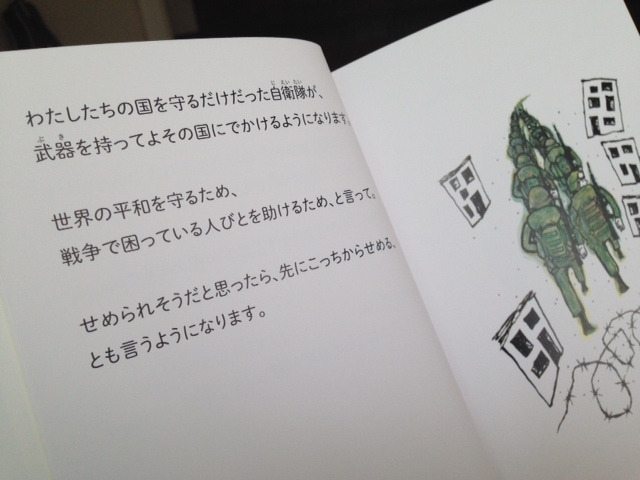 わたしたちの国を守るだけだった自衛隊が、
武器を持ってよその国にでかけるようになります。
世界の平和を守るため、
戦争で困っている人びとを助けるため、と言って。
せめられそうだと思ったら、先にこっちからせめる、
とも言うようになります。